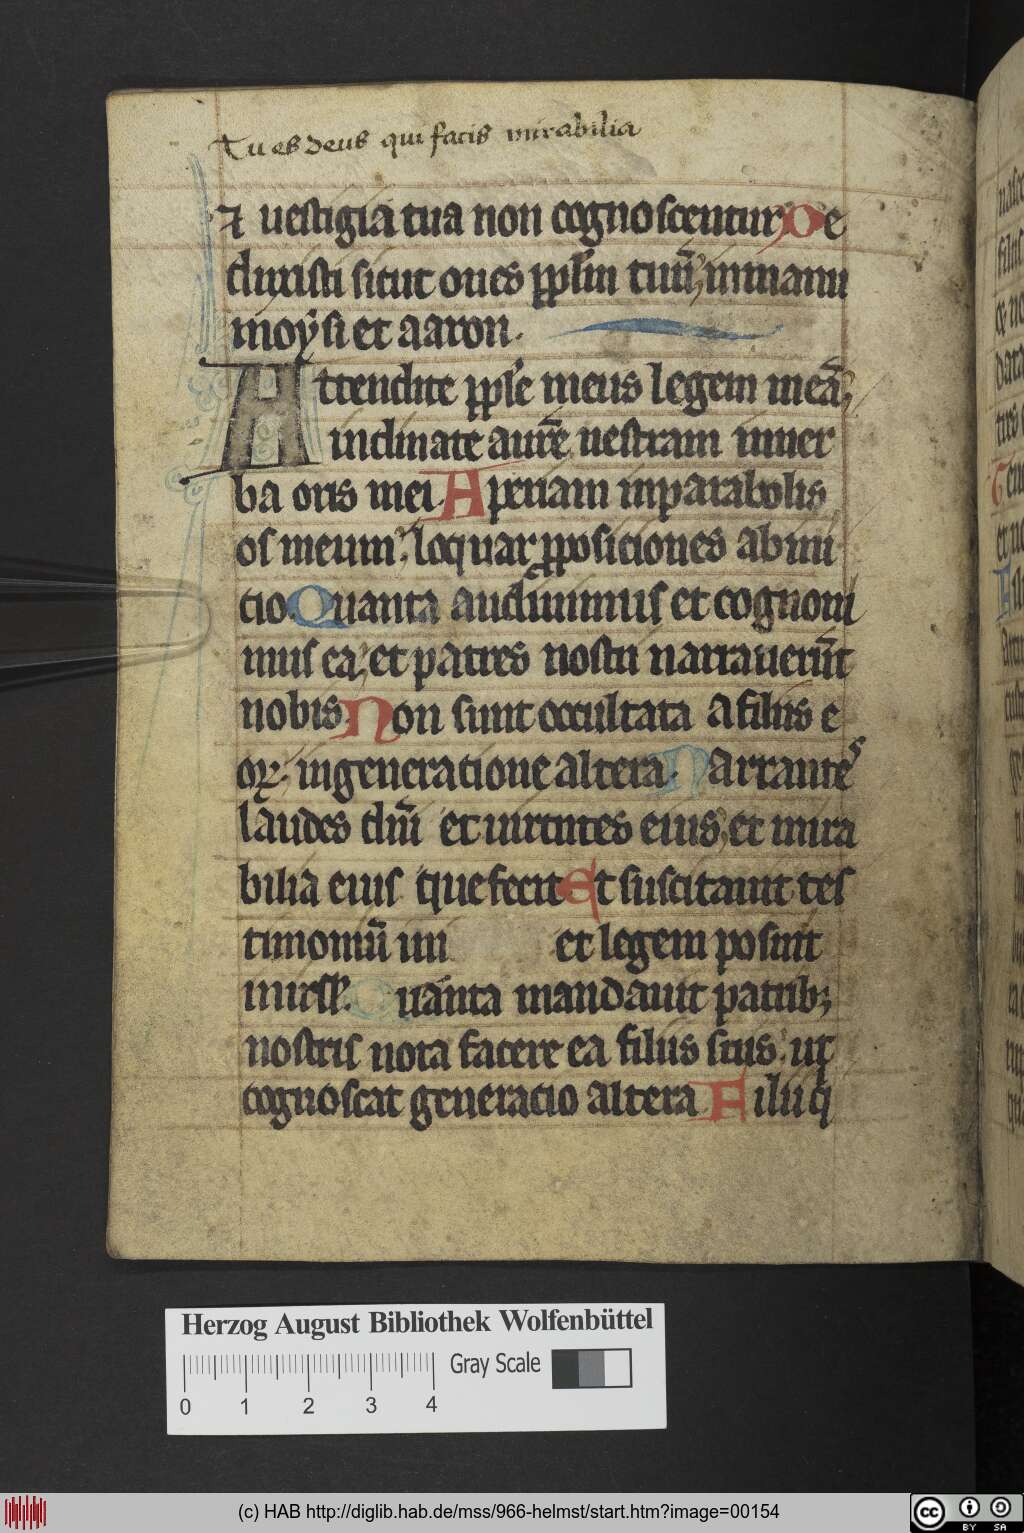 Tu es deus qui facis mirabilia
⁊ uestigia tua non cognoscentur De
duxisti sicut oues ppl̅m tuū, inmanu
moẏsi et aaron.
Attendite pple̅ meus legem meā,
inclinate aure̅ uestram inuer
ba oris mei. Aperiam inparabolis
os meum, loquar ꝓposiciones ab ini
cio. Quanta audiuimus et cognoui
mus ea, et patres nostri narrauerūt
nobis. Non sunt occultata a filiis e
oꝝ. ingeneratione altera. Narrantes
laudes dn̅i et uirtutes eius, et mira
bilia eius que fecit Et suscitauit tes
timoniū in et legem posuit
inirsl̅. Quanta mandauit patrib;
nostris nota facere ea filiis suis. ut
cognoscat generatio altera Filii q̇
Herzog August Bibliothek Wolfenbüttel
Gray Scale
0 1 2 3 4
(c) HAB http://diglib.hab.de/mss/966-helmst/start.htm?image=00154
cc BY SA